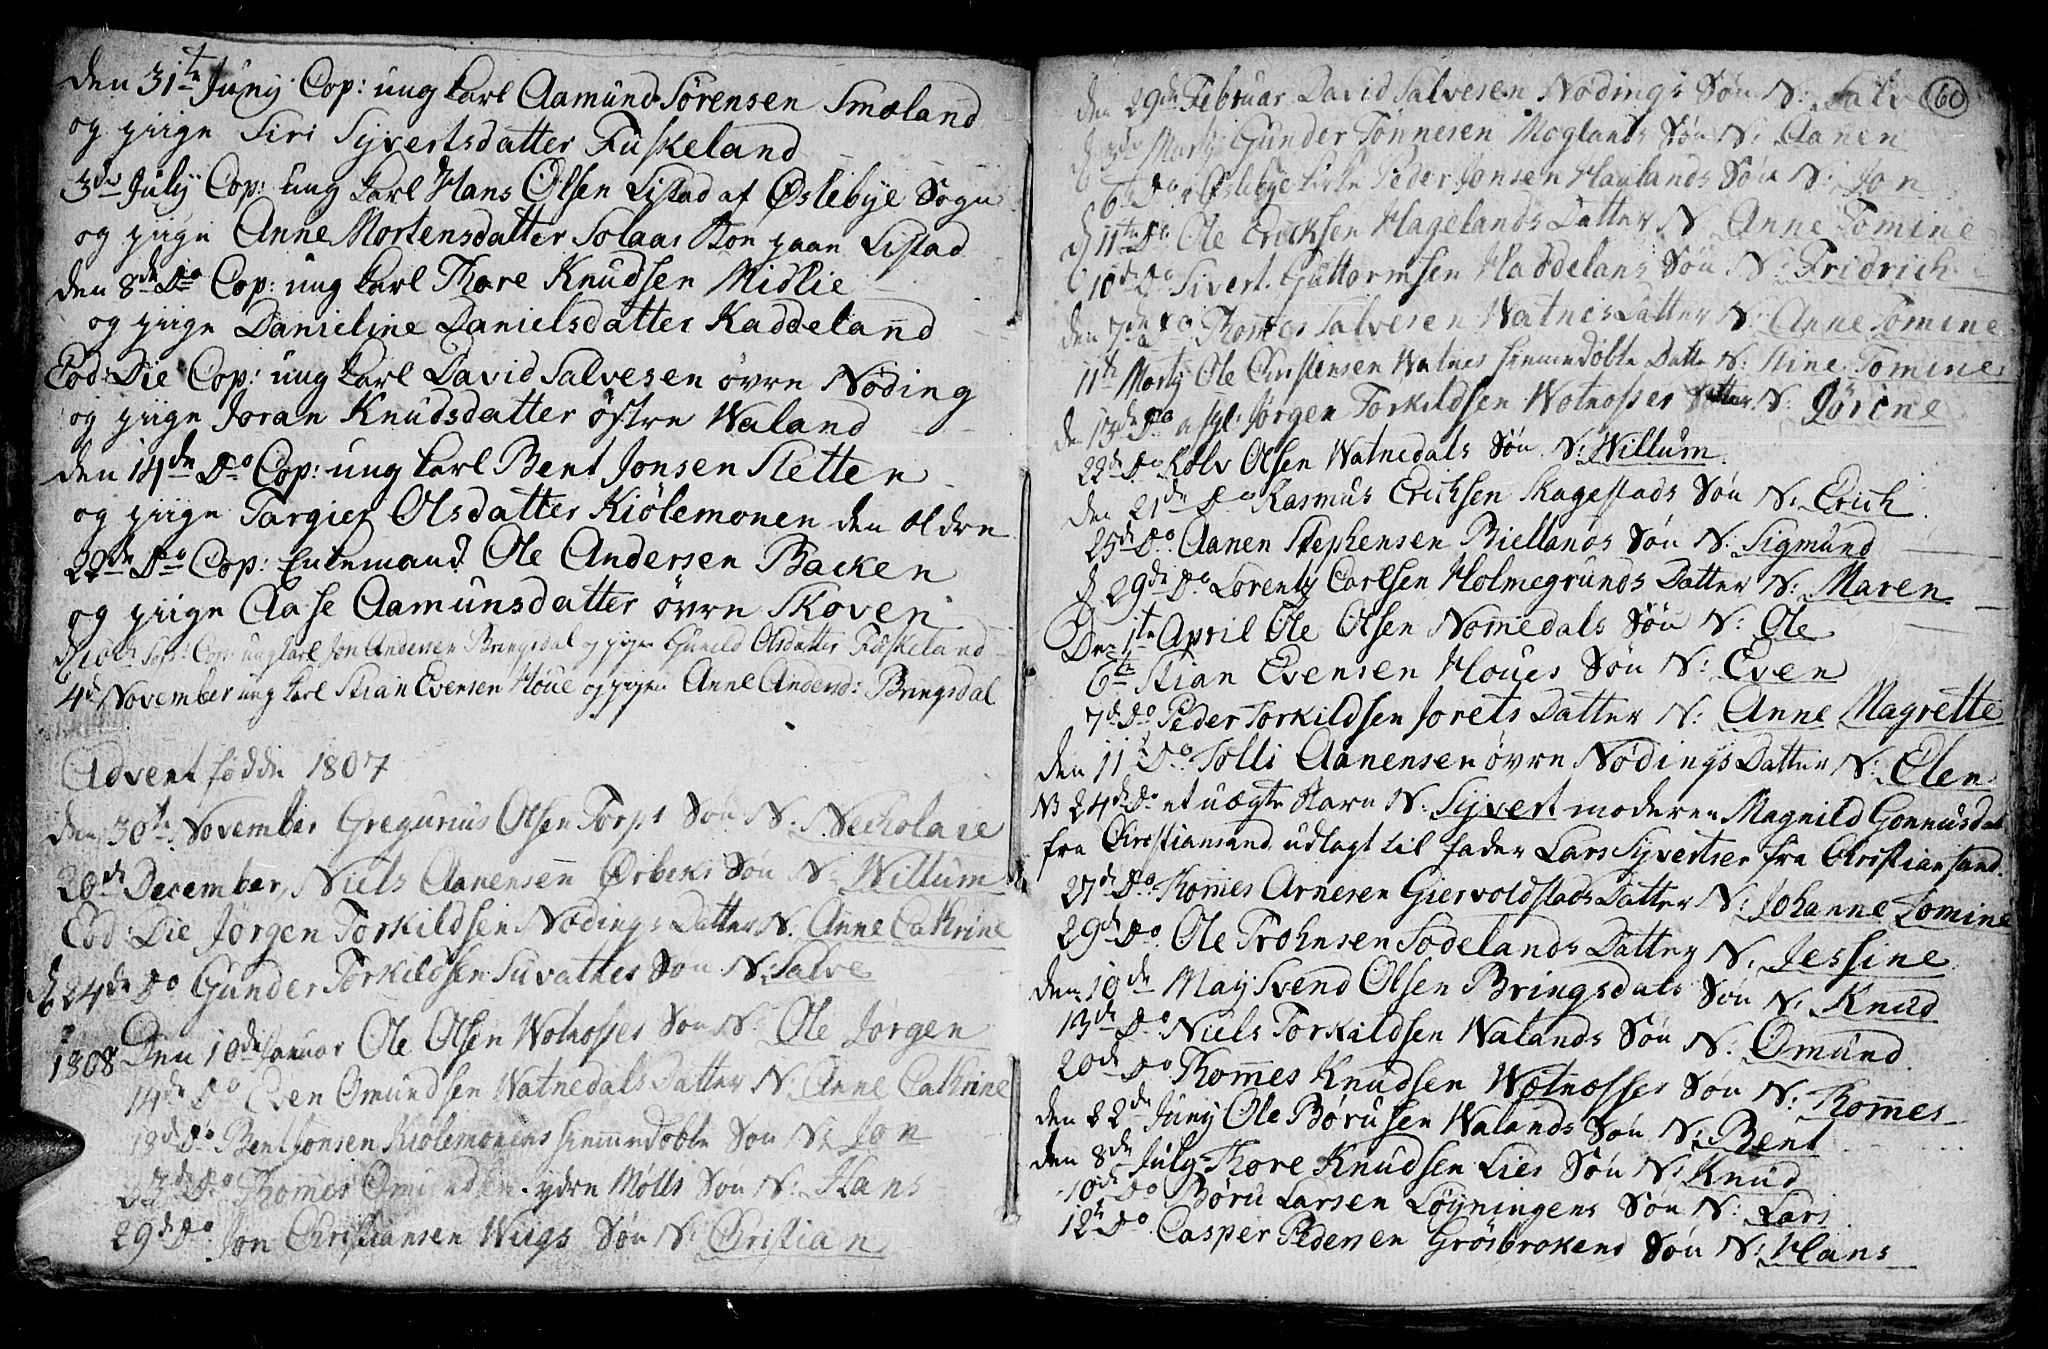 den 31te Juny Cop: ung karl Aamund Sörensen Smæland
og piige Siri Syvertsdatter Fuskeland
3die July Cop: ung karl Hans Olsen Listad af Øslebye Sogn
og piige Anne Mortensdatter Solaas paa Listad
den 8de Do Cop: ung karl Thore Knudsen Midlie
og piige Danieline Danielsdatter Kaddeland
Eod: Die Cop: ung karl David Salvesen övre Nöding
og piige Joran Knudsdatter östre Waland
den 14de Do Cop: ung karl Bent Jonsen Sletten
og piige Targier Olsdatter Kiölemonen den eldre
22de Do Cop: Enkemand Ole Andersen Backen
og piige Aase Aamunsdatter övre Skoven
Cop: ung karl Jon Andersen Bringsdal og pige Gunild Olsdatter Fuskeland
4de November ung karl Stian Evensen Houe og pige Anne Andersd: Bringsdal
Advent födde 1807
den 30te November Gregurius Olsen Torps Sön N. Necholaie
20de December, Niels Aanensen Örbeks Sön N. Willum
Eod: Die Jörgen Torkildsen Nödings Datter N. Anne Cathrine
d 24de Do Gunder Torkildsen Suvatnes Sön N. Salve
1808 Den 10de Januar Ole Olsen Wotnosses Sön N. Ole Jörgen
14de Do Even Omundsen Watnedals Datter N. Anne Cathrine
18de Do Bent Jonsen Kiölemonens hiemmedöbte Sön N. Jon
23de Do Thomes Omundsen ydre Mölls Sön N: Hans
29de Do Jon Christiansen Wiigs Sön N: Christian
60
den 29de Februar David Salvesen Nödings Sön N: Salve
Marty Gunder Tönnesen Moglands Sön N: Aanen
6te Do i Øslebye kirke Peder Jonsen Haulands Sön N: Jon
d 11te Do Ole Ericksen Hagelands Datter N. Anne Tomine
10de Do Sivert Guttormsen Haddelans Sön N: Fridrich
den 7de Do Thomes Salvesen Watnes Datter N: Anne Tomine
11te Marty Ole Christensen Watnes hiemmedöbte Datter N: Stine Tomine
den 13de Do Jörgen Torkildsen Wotnosses Datter N. Jörine
22de Do Rolv Olsen Watnedals Sön N: Willum
den 21de Do Rasmus Erichsen Skagestads Sön N: Erich
25de Do Aanen Stephensen Biellands Sön N: Sigmund
d 29de Do Lorentz Carlsen Holmegrunds Datter N: Maren
Den 1te April Ole Olsen Nomedals Sön N: Ole
6te Stian Evensen Houes Sön N: Even
7de Do Peder Torkildsen Jorets Datter N: Anne Magrette
den 11te Do Tolli Aanensen övre Nödings Datter N: Elen
NB 24de Do et uægte Barn N. Syvert moderen Magnild Gonnusdat
fra Christiansand udlagt til fader Lars Syvertsen fra Christiansand.
27de Do Thomes Arnesen Giervoldstads Datter N: Johanne Tomine
29de Do Ole Trohnsen Södelands Datter N. Jessine
den 10de May Svend Olsen Bringsdals Sön N: Knud
13de Do Niels Torkildsen Walands Sön N. Omund
20de Do Thomes Knudsen Wetnosses Sön N: Thomes
den 22de Juny Ole Börusen Walands Sön N: Bent
den 8de July Thore Knudsen Lies Sön N: Knud
10de Do Böru Larsen Löyningens Sön N: Lars
12te Do Casper Pedersen Grösbrokens Sön N: Hans